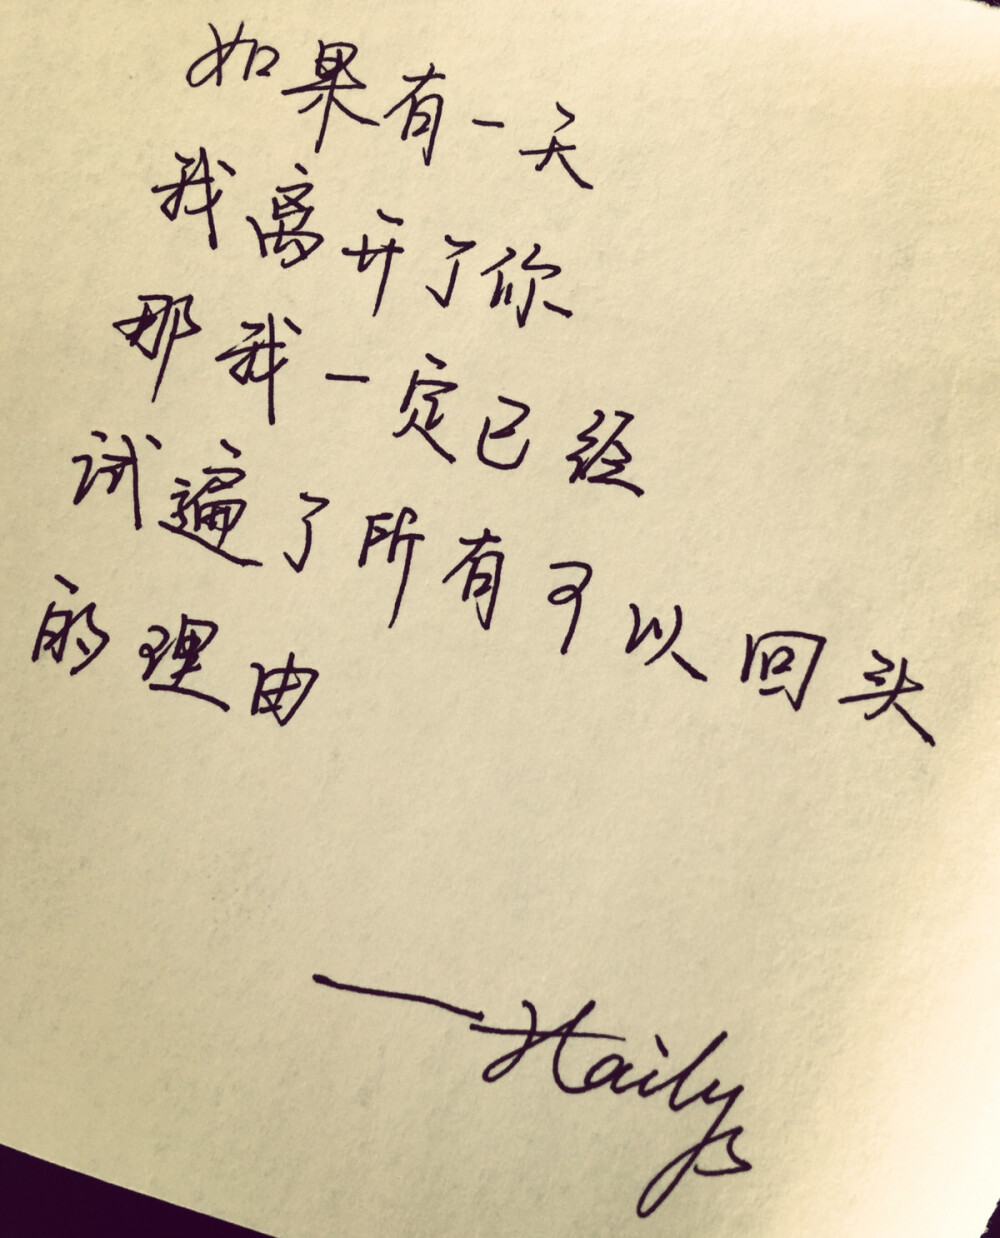 如果有一天
我离开了你
那我一定已经
试遍了所有可以回头
的理由
——Haily